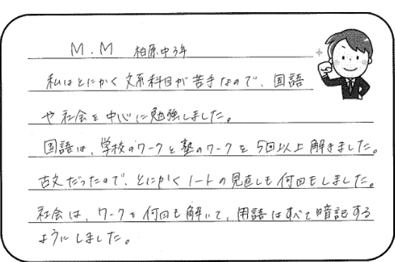 M.M 柏原中3年
私はとにかく文系科目が苦手なので、国語
や社会を中心に勉強しました。
国語は、学校のワークと塾のワークを5回以上解きました。
古文だったので、とにかくノートの見直しも何回もしました。
社会は、ワークを何回も解いて、用語はすべて暗記する
ようにしました。